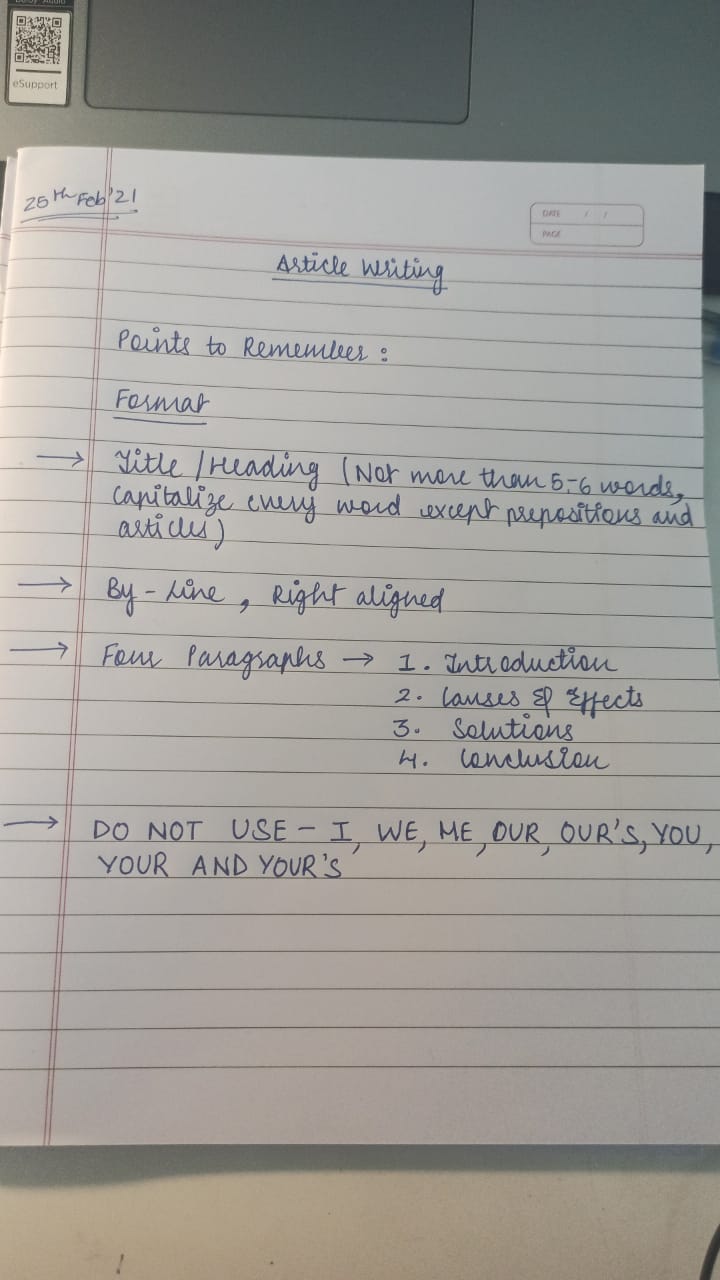 eSupport
25th Feb'21
DATE / /
PAGE
Article Writing
Points to Remember :
Format
→ Title / Heading (Not more than 5-6 words,
Capitalize every word except prepositions and
articles)
→ By-Line, Right aligned
→ Four Paragraphs → 1. Introduction
2. Causes & Effects
3. Solutions
4. Conclusion
→ DO NOT USE - I, WE, ME, OUR, OUR'S, YOU,
YOUR AND YOUR'S